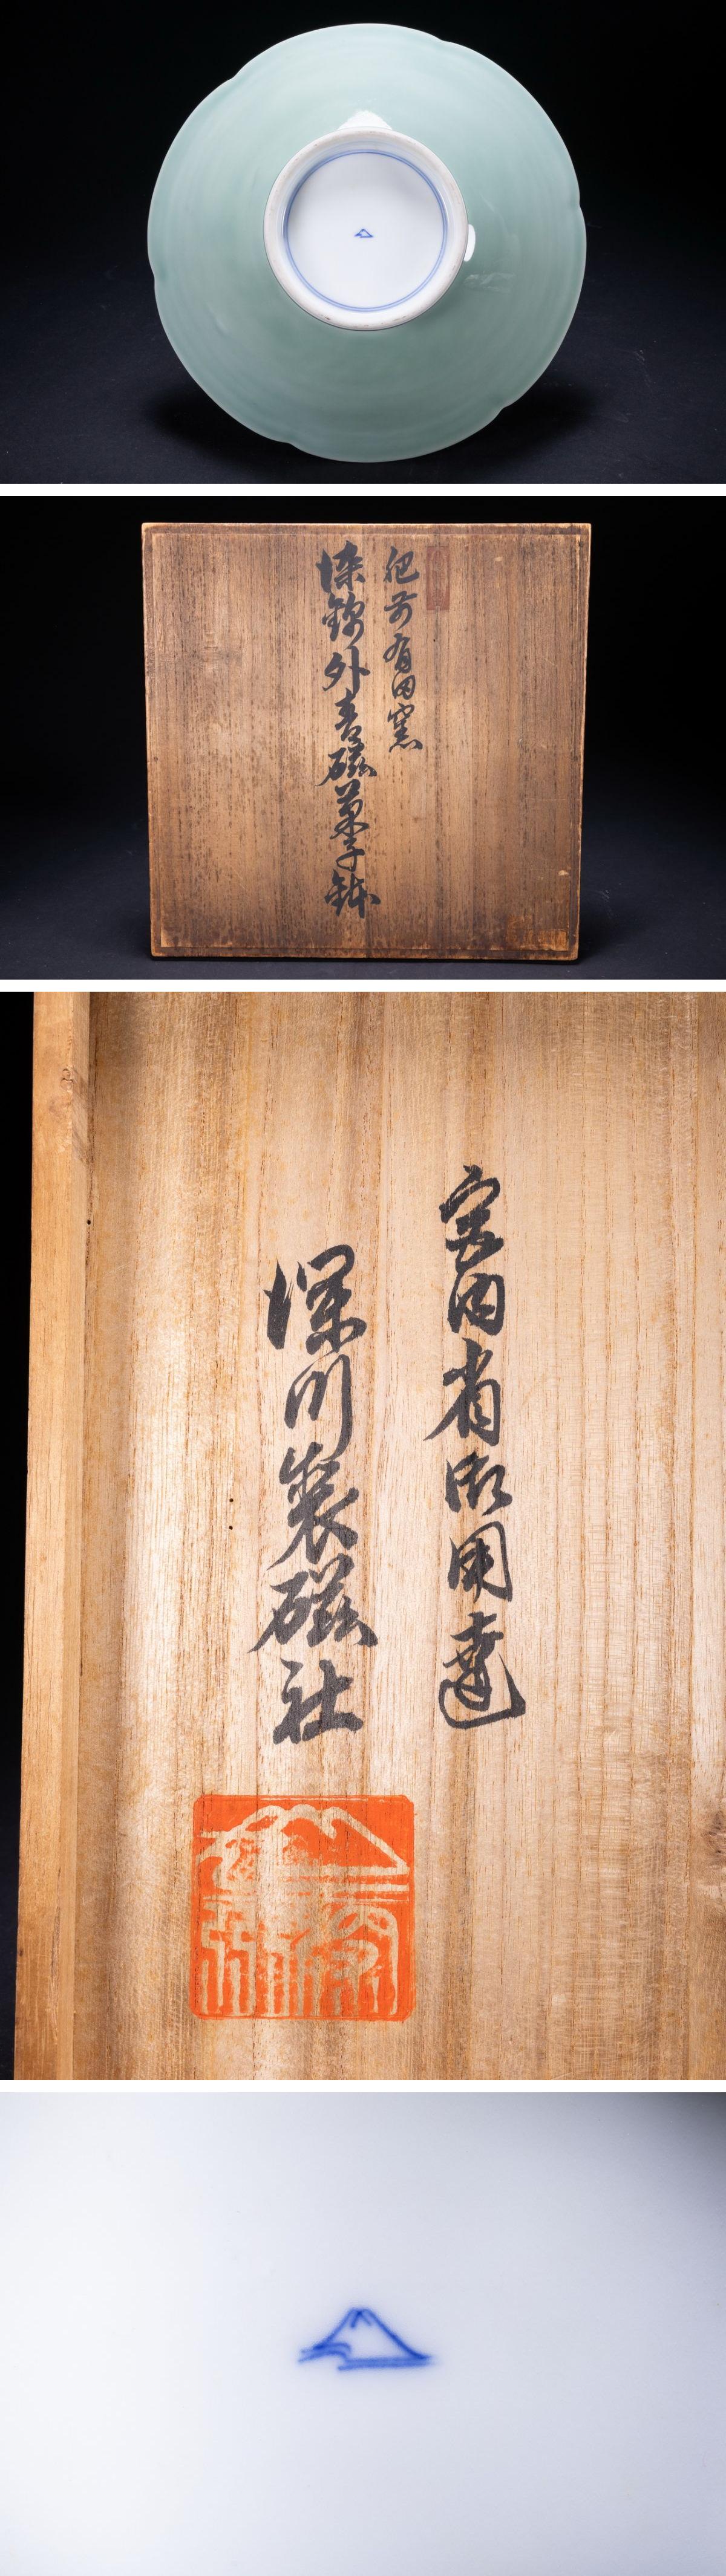 肥前有田窯
染錦外青磁菓子鉢
宮内省御用達
深川製磁社